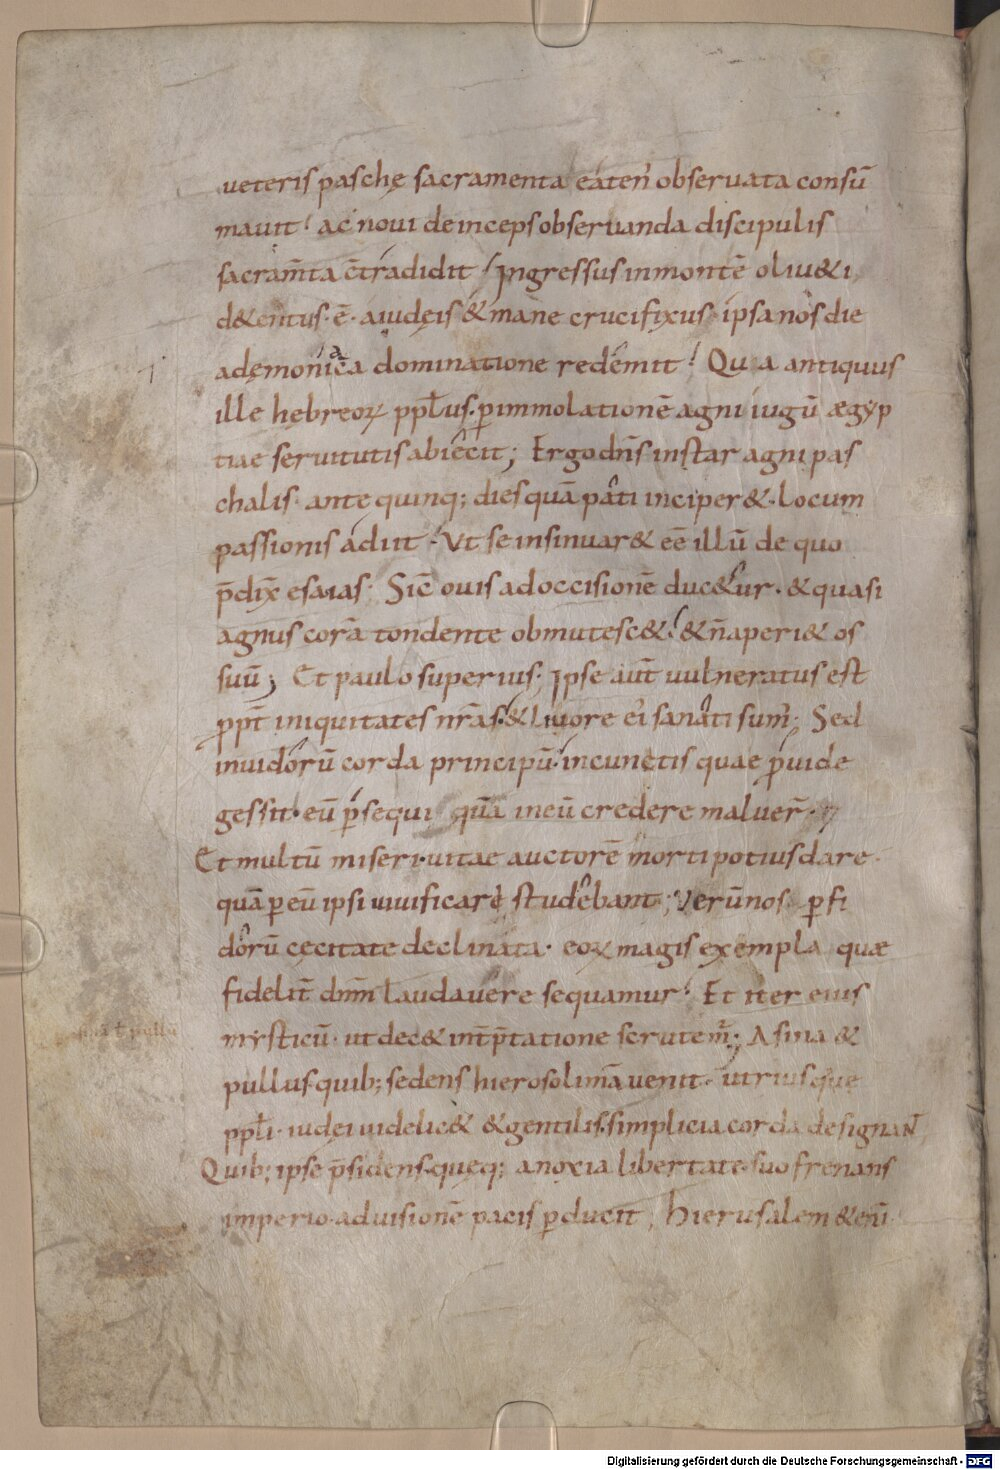 ueteris paschę sacramenta eaten̄ obseruata consū
mauit ac noui deinceps obseruanda discipulis
sacram̄ta c̄tradidit Ingressus in montē oliu&i
d&entus · ē · aiudęis & mane crucifixus · ipsa nos die
adęmoniaca dominatione redemit Qua antiquus
ille hebreoꝝ ppl̄us · ꝑ immolationē agni iugū ægyp
tiae seruitutis abiecit ; Ergo dn̄s instar agni pas
chalis · ante quinq; dies quā pati inciper& · locum
passionis adiit · Ut se insinuar& eē illū de quo
p̄dix̄ esaias · Sic̄ ouis ad occisionē duc&ur · & quasi
agnus corā tondente obmutesc& & n̄ aperi& os
suū ; Et paulo superius · Ipse aut̄ uulneratus est
ppt̄ iniquitates nr̄as · & liuore ei' sanati sum' ; Sed
inuidorū corda principū · in cunctis quae ꝑuide
gessit · eū ꝑsequi quā in eū credere maluer̄ ·
Et multū miseri · uitae auctorē morti potius dare ·
quā ꝑ eū ipsi uiuificare studebant ; Verū nos ꝑfi
dorū cęcitate declinata · eoꝝ magis exempla quæ
fidelit̄ dnm̄ laudauere sequamur Et iter eius
mysticū · ut dec& int̄p̄tatione scrutem̄ ; Asina &
pullus quib; sedens hierosolimā uenit · utriusque
ppl̄i · iudęi uidelic& & gentilis simplicia corda designant
Quib; ipse p̄sidens queq; a noxia libertate suo frenans
imperio · ad uisionē pacis ꝑducit ; Hierusalem &eni
Digitalisierung gefördert durch die Deutsche Forschungsgemeinschaft - DFG